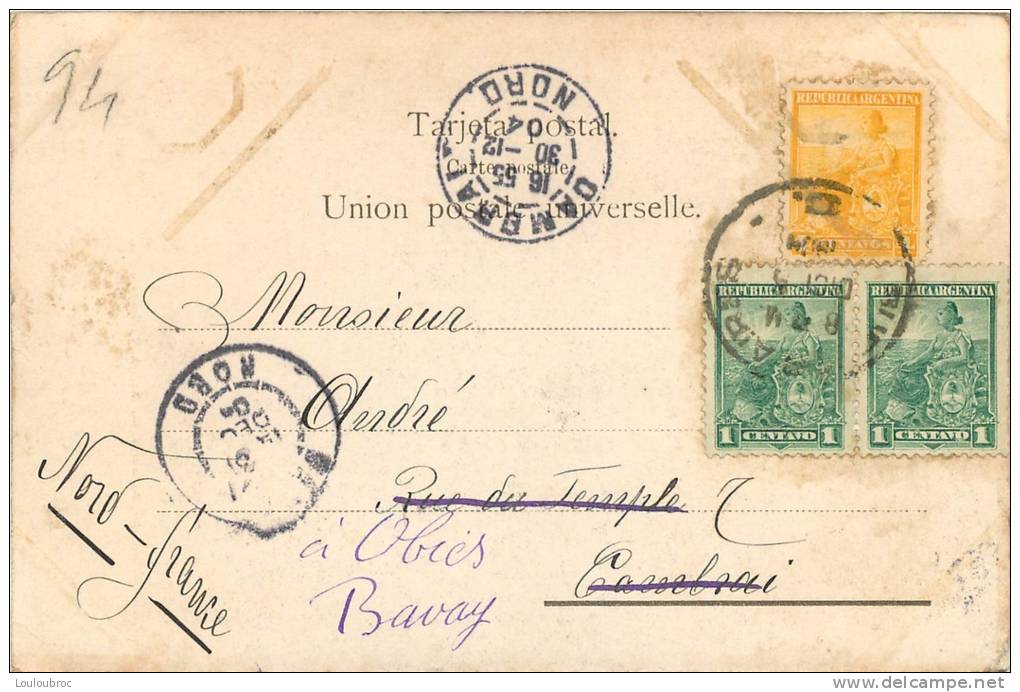 94
REPUBLICA ARGENTINA
CENTAVOS
Tarjeta postal.
Carte postale.
Union postale universelle.
CAMBRAI
NORD
16 55
30 -12
04
REPUBLICA ARGENTINA
REPUBLICA ARGENTINA
1 CENTAVO 1
1 CENTAVO 1
Monsieur
NORD
André
Rue du Temple 7
Cambrai
à Obies
Bavay
Nord-France
Louloubroc
www.delcampe.net